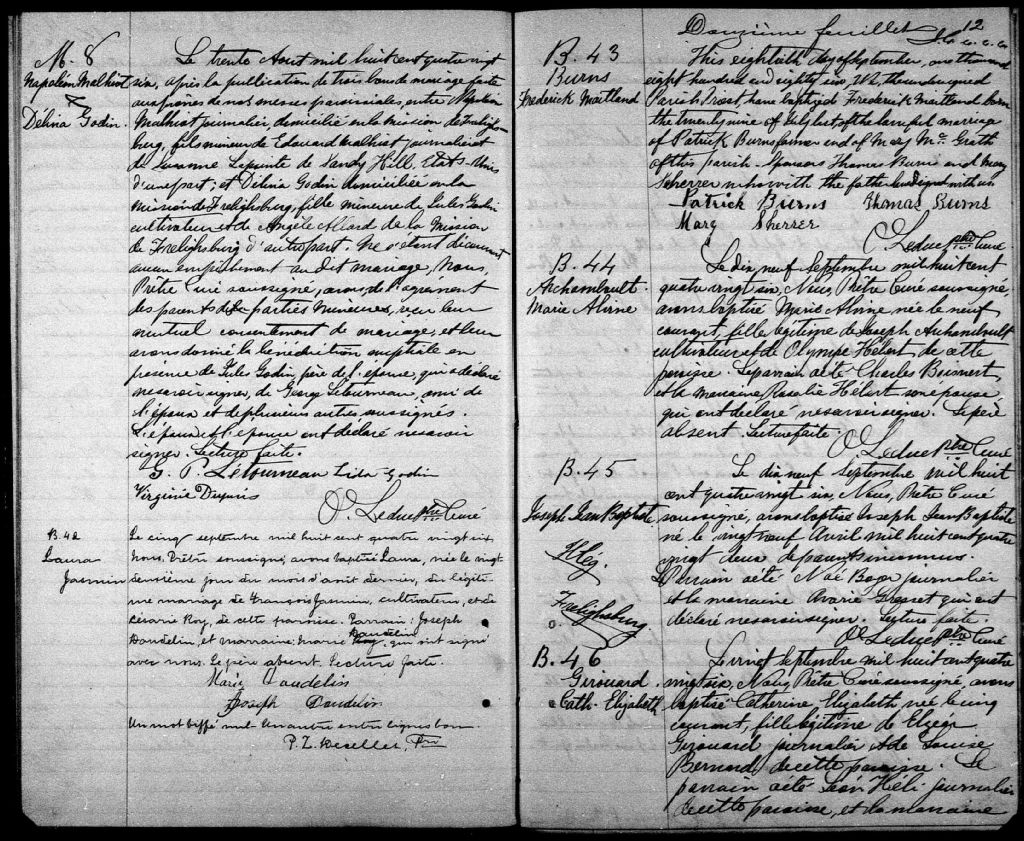 M. 8
Napoléon Malhiot
&
Délina Godin.
Le trente Aout mil huit cent quatre vingt
six, après la publication de trois bans de mariage faite
aux prônes de nos messes paroissiales, entre Napoléon
Malhiot journalier, domicilié en la mission de Frelighs-
burg, fils mineur de Edouard Malhiot journalier et
de Suzanne Lapointe de Sandy Hill, Etats-Unis
d'une part; et Délina Godin domiciliée en la
mission de Frelighsburg, fille mineure de Jules Godin
cultivateur et de Angèle Allard de la Mission
de Frelighsburg d'autre part. Ne s'étant découvert
aucun empêchement au dit mariage, Nous,
Prêtre Curé soussigné, avons, de l'agrément
des parents des parties mineures, reçu leur
mutuel consentement de mariage, et leur
avons donné la bénédiction nuptiale en
présence de Jules Godin, père de l'épouse, qui a déclaré
ne savoir signer, de Georg Létourneau, ami de
l'époux et de plusieurs autres soussignés.
L'époux et l'épouse ont déclaré ne savoir
signer. Lecture faite.
G. P. Letourneau Lida Godin
Virginie Dupuis
O. Leduc Ptre Curé
B. 42
Laura
Jasmin
Le cinq septembre mil huit cent quatre vingt six
nous, Prêtre soussigné, avons baptisé Laura, née le vingt
deuxième jour du mois d'août dernier, du légiti-
me mariage de François Jasmin, cultivateur, et de
Césarie Roy, de cette paroisse. Parrain: Joseph
Daudelin, et marraine: Marie Daudelin, qui ont signé
avec nous. Le père absent. Lecture faite.
Marie Daudelin
Joseph Daudelin
Un mot biffé nul. Un autre entre lignes bon
P. Z. Decelles, Ptre
Douzième feuillet 12
B. 43
Burns
Frederick Maitland
This eighteith day of september, one thousand
eight hundred and eighty six, We, the undersigned
Parish Priest, have baptised Frederick Maitland born
the twenty nine of July last, of the lawful marriage
of Patrick Burns farmer and of Mary Mc Grath
of this parish. Sponsors Thomas Burns and Mary
Scherrer who with the father have signed with us
Patrick Burns Thomas Burns
Mary Sherrer
O. Leduc ptre Curé
B. 44
Archambault
Marie Alvine
Le dix neuf Septembre mil huit cent
quatre vingt six, Nous, Prêtre Curé soussigné,
avons baptisé Marie Alvine née le neuf
courant, fille légitime de Joseph Archambault
cultivateur et de Olympe Hébert, de cette
paroisse. Le parrain a été Charles Boisvert
et la marraine Rosalie Hébert son épouse,
qui ont déclaré ne savoir signer. Le père
absent. Lecture faite.
O. Leduc Ptre Curé
B. 45
Joseph Jean Baptiste
Frelighsburg
Le dix neuf Septembre mil huit
cent quatre vingt six, Nous, Prêtre Curé
soussigné, avons baptisé Joseph Jean Baptiste
né le vingt neuf Avril mil huit cent quatre
vingt deux de parents inconnus.
Le parrain a été Noé journalier
et la marraine qui ont
déclaré ne savoir signer. Lecture faite.
O. Leduc Ptre Curé
B. 46
Girouard
Cath. Elizabeth
Le vingt Septembre mil huit cent quatre
vingt six, Nous, Prêtre Curé soussigné, avons
baptisé Catherine Elizabeth née le cinq
courant, fille légitime de Elzéar
Girouard journalier et de Louise
Bernard, de cette paroisse. Le
parrain a été Léon Héli journalier
de cette paroisse, et la marraine